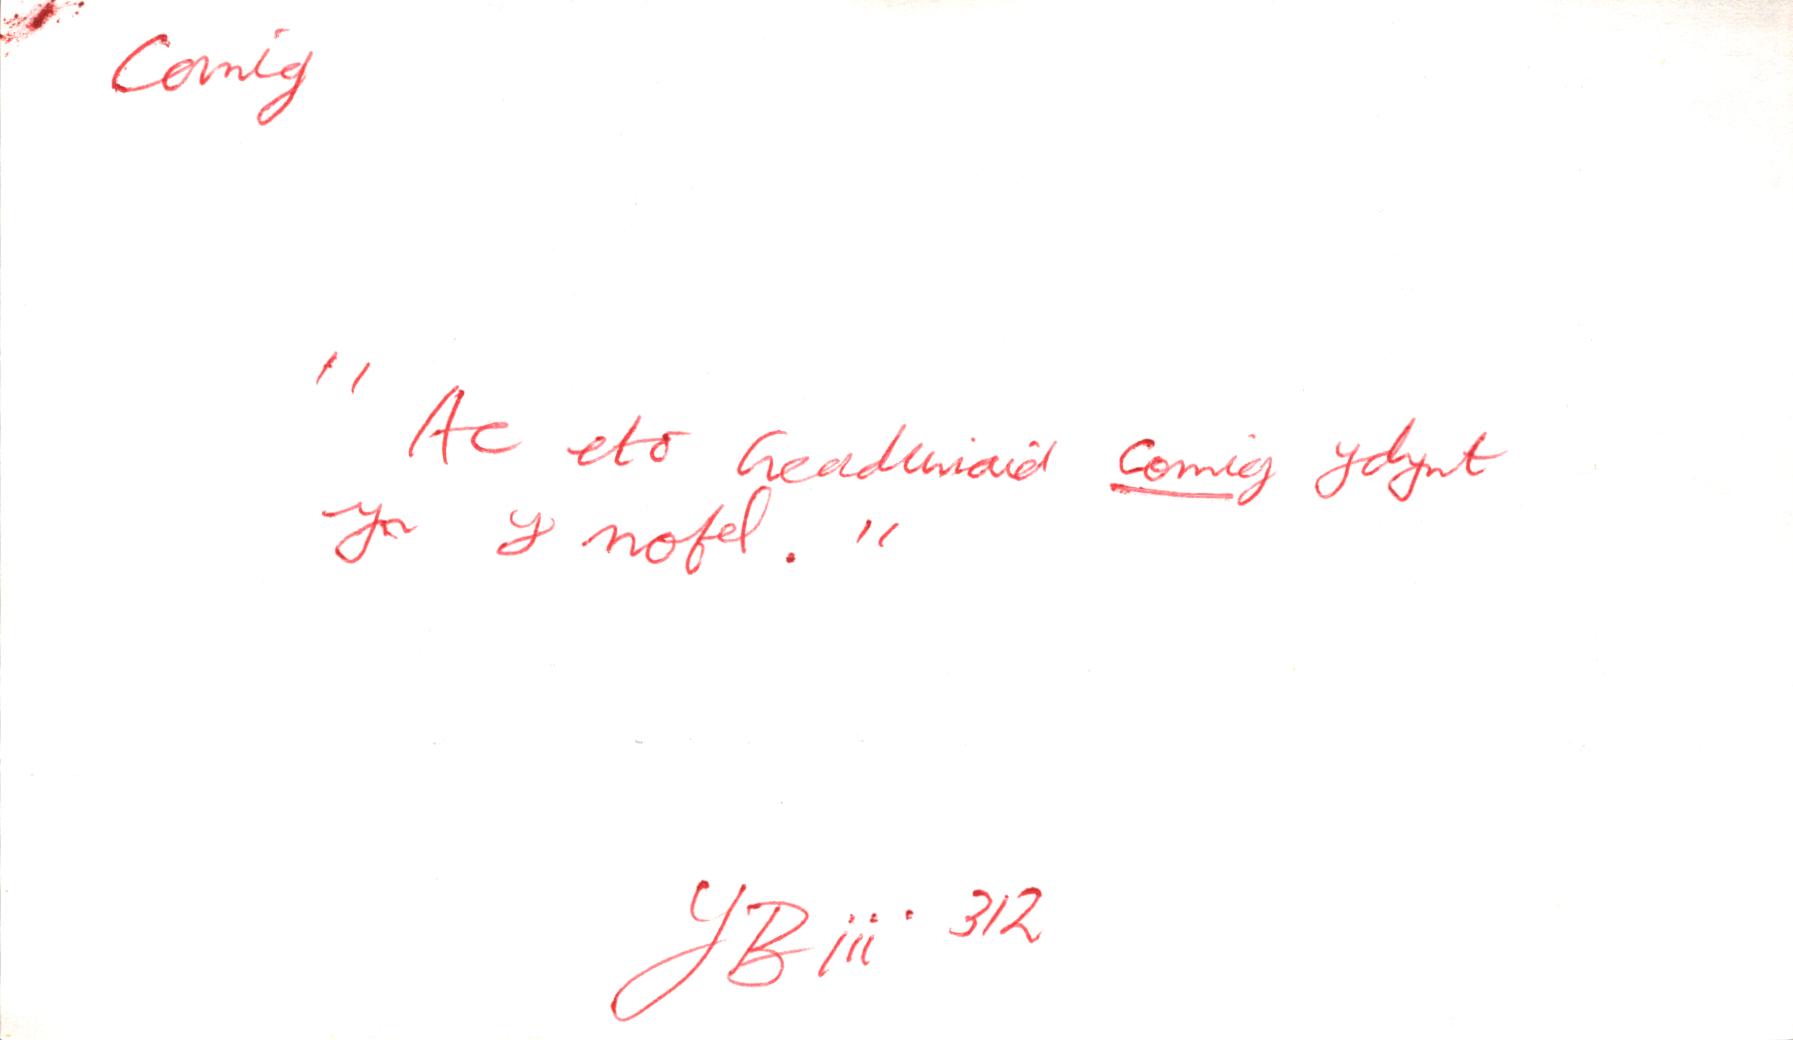 Comig
" Ac eto creaduriaid comig ydynt
yn y nofel. "
YB iii. 312